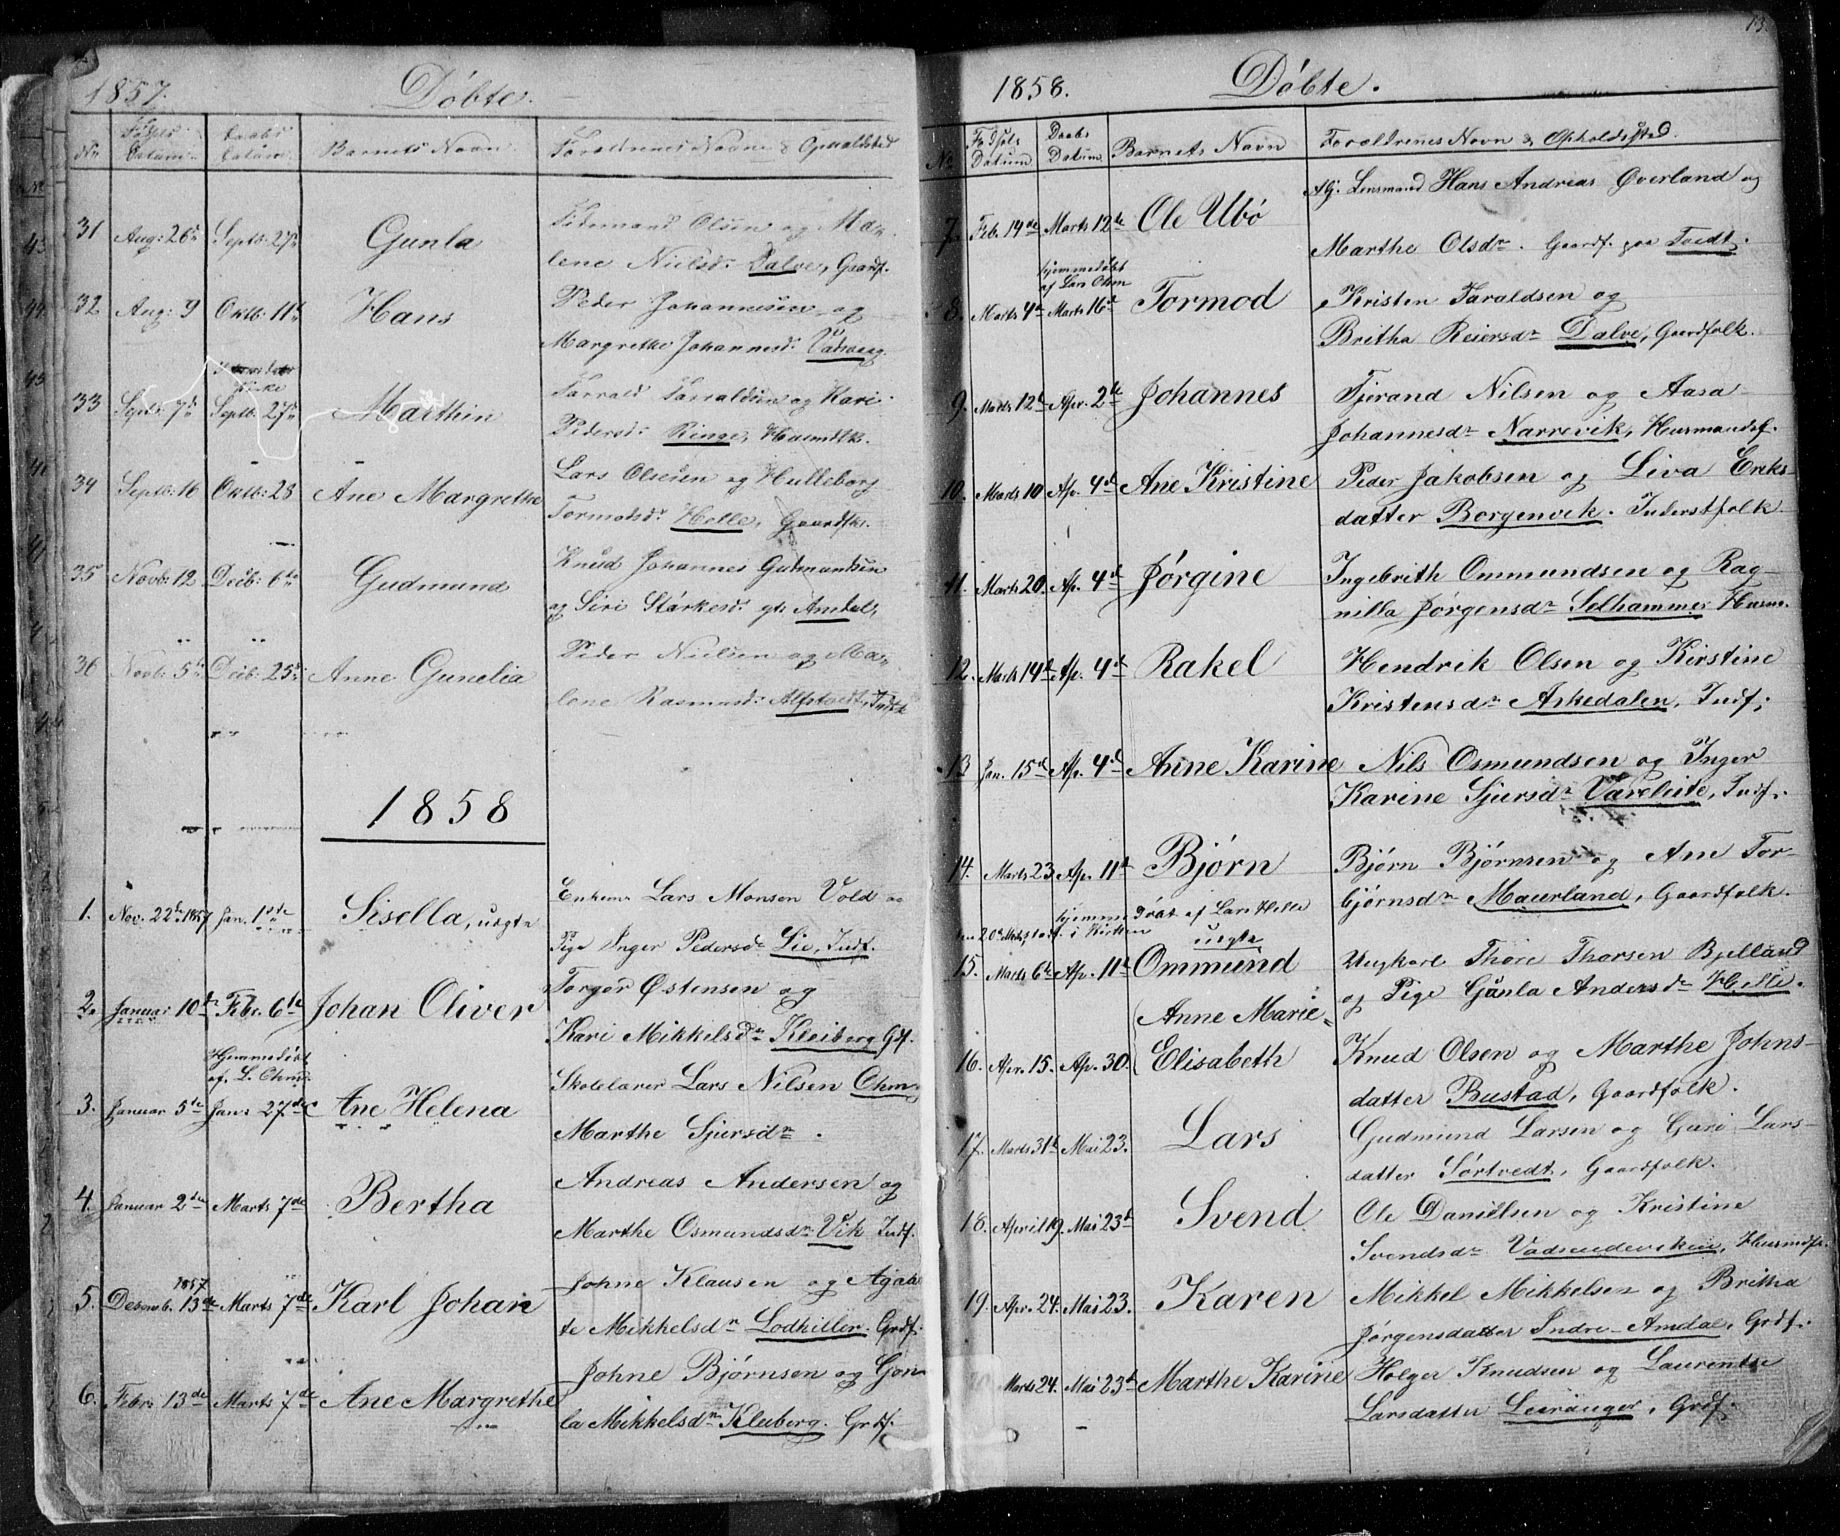 1857. Døbte.
No Fødsels Datum Daabs Datum Barnets Navn Forældrenes Navne & Opholdsted
31 Aug: 26de Septb: 27de Gunla Tidemand Olsen og Ma-
lene Nielsd: Dalve, Gaardf.
32 Aug: 9 Oktb: 11te Hans Peder Johannesen og
Margrethe Johannesd: Vadvæg.
33 Septb: 7de Septb: 27de Marthin Tarrald Tarraldsen og Kari
Pedersd: Ringe, Huusmdfk.
34 Septb: 16 Oktb: 28 Ane Margrethe Lars Olesen og Hulleborg
Tormodsd: Helle, Gaardfk.
35 Novb: 12 Decb: 6te Gudmund Knud Johannes Gudmundsen
og Siri Størkersd: Amdal,
36 Novb: 5te Decb: 25de Anne Gunelia Peder Nielsen og Ma-
lene Rasmusd: Alfstvedt, Indfk
1858
1. Nov. 22de 1857 Jan. 1ste Sisella, uægte Enkem. Lars Monsen Vold og
Pige Inger Pedersdr Lie, Indf.
2. Januar 10de Febr. 6te Johan Oliver Torger Østensen og
Kari Mikkelsdr Kleiberg Gdf.
Hjemmedøbt
af L. Ohm. Skolelærer Lars Nilsen Ohm,
3. Januar 5te Jan: 27de Ane Helena
Marthe Sjursdr.
4. Januar 2den Marts 7de Bertha Andreas Andersen og
Marthe Osmundsdr Vik Indf.
1857
5. Desemb. 13de Marts 7de Karl Johan Johne Klausen og Agate
te Mikkelsdr Lodhiller. Grdf.
6. Febr: 13de Marts 7de Ane Margrethe Johne Bjørnsen og Gon-
la Mikkelsdr Kleiberg. Grdf.
13.
1858. Døbte.
No Fødsels Datum Daabs Datum Barnets Navn Forældrenes Navn & Opholdssted.
7. Feb. 14de Marts 12te Ole Ubø Afg. Lensmand Hans Andreas Øverland og
Marthe Olsdr. Gaardf. paa Tvedt.
hjemmedøbt
af Lars Ohm
8. Marts 4de Marts 16de Tormod Kristen Taraldsen og
Britha Reiersdr Dalve, Gaardfolk.
9. Marts 12te Apr. 2de Johannes Tjerand Nilsen og Aasa
Johannesdr Narrevik, Husmandsf.
10. Marts 10 Ap. 4de Ane Kristine Peder Jakobsen og Liva Eriks-
datter Borgenvik. Inderstfolk
11. Marts 20. Ap. 4de Jørgine Ingebrith Ommundsen og Rag-
nilla Jørgensdr Solhammer Husm.
12. Marts 14de Ap. 4de Rakel Hendrik Olsen og Kirstine
Kristensdr Askedalen, Indf.
13 Jan. 15de Ap. 4de Anne Karine Nils Osmundsen og Inger
Karine Sjursdr Vareleite, Indf.
14. Marts 23 Ap. 11te Bjørn Bjørn Bjørnsen og Ane Tor-
bjørnsdr Maurland, Gaardfolk.
hjemmedøbt af Lars Helle
uægte
15. Marts 6te Ap. 11te Ommund Ungkarl Thore Thorsen Bjelland
og Pige Gunla Andersdr Helle.
16. Apr. 15. Ap. 30. Anne Marie
Elisabeth Knud Olsen og Marthe Johns-
datter Bustad, Gaardfolk.
17. Marts 31te Mai 23. Lars Gudmund Larsen og Guri Lars-
datter Sørtvedt, Gaardfolk.
18. April 19. Mai 23de Svend Ole Daniellsen og Kristine
Svendsdr Vadsundeviken, Husmdf.
19. Apr. 24. Mai 23. Karen Mikkel Mikkelsen og Britha
Jørgensdatter Indre-Amdal, Grdf.
20 Marts 24. Mai 23de Marthe Karine Holger Knudsen og Laurentse
Larsdatter Leiranger, Grdf.